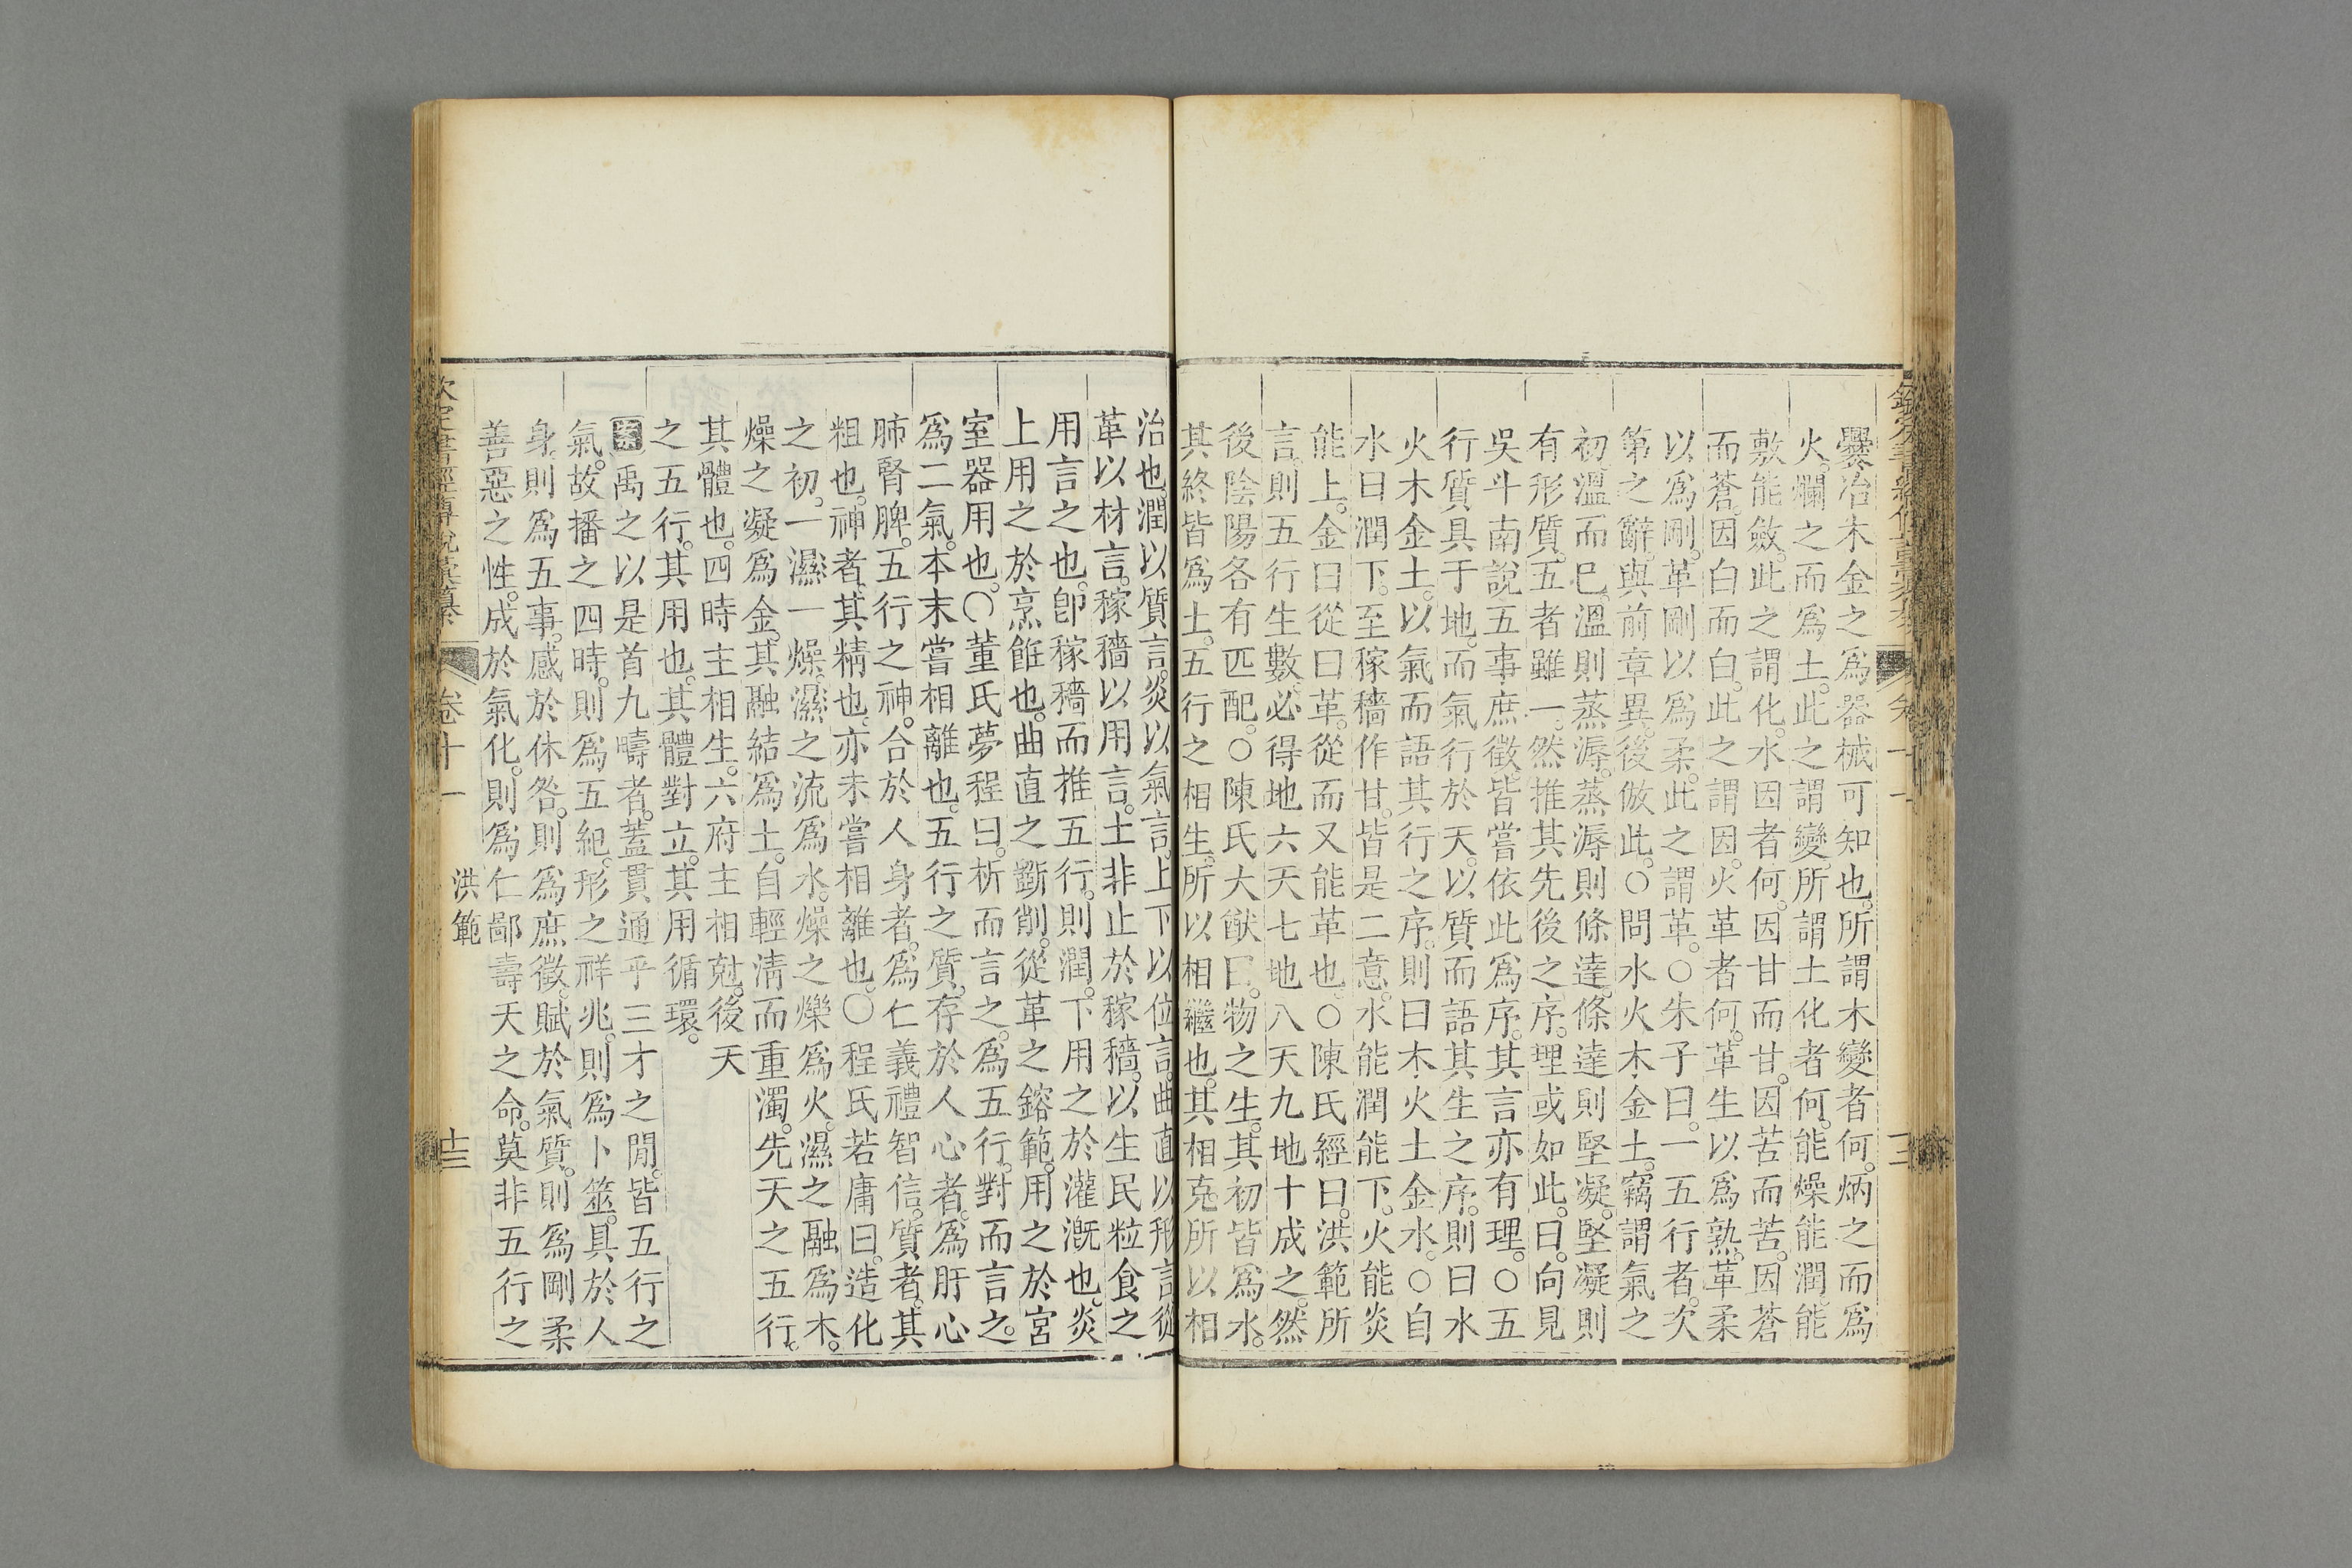 爨冶木金之爲器械可知也。所謂木變者何。炳之而爲
火。爛之而爲土。此之謂變。所謂土化者何。能燥能潤。能
敷能斂。此之謂化。水因者何。因甘而甘。因苦而苦。因蒼
而蒼。因白而白。此之謂因。火革者何。革生以爲熟。革柔
以爲剛。革剛以爲柔。此之謂革。○朱子曰。一五行者。次
第之辭。與前章異。後倣此。○問水火木金土。竊謂氣之
初。溫而已。溫則蒸溽。蒸溽則條達。條達則堅凝。堅凝則
有形質。五者雖一。然推其先後之序。理或如此。曰。向見
吳斗南說五事庶徵。皆嘗依此爲序。其言亦有理。○五
行質具于地。而氣行於天。以質而語其生之序。則曰水
火木金土。以氣而語其行之序。則曰木火土金水。○自
水曰潤下。至稼穡作甘。皆是二意。水能潤能下。火能炎
能上。金曰從曰革。從而又能革也。○陳氏經曰。洪範所
言。則五行生數。必得地六天七地八天九地十成之。然
後陰陽各有匹配。○陳氏大猷曰。物之生。其初皆爲水。
其終皆爲土。五行之相生。所以相繼也。其相克。所以相
治也。潤以質言。炎以氣言。上下以位言。曲直以形言。從
革以材言。稼穡以用言。土非止於稼穡。以生民粒食之
用言之也。卽稼穡而推五行。則潤下用之於灌漑也。炎
上用之於烹飪也。曲直之斲削。從革之鎔範。用之於宮
室器用也。○董氏夢程曰。析而言之。爲五行。對而言之。
爲二氣。本末嘗相離也。五行之質。存於人心者。爲肝心
肺腎脾。五行之神。合於人身者。爲仁義禮智信。質者。其
粗也。神者。其精也。亦未嘗相離也。○程氏若庸曰。造化
之初。一濕一燥。濕之流爲水。燥之爍爲火。濕之融爲木。
燥之凝爲金。其融結爲土。自輕清而重濁。先天之五行。
其體也。四時主相生。六府主相尅。後天
之五行。其用也。其體對立。其用循環。
案禹之以是首九疇者。蓋貫通乎三才之閒。皆五行之
氣。故播之四時。則爲五紀。形之祥兆。則爲卜筮。具於人
身。則爲五事。感於休咎。則爲庶徵。賦於氣質。則爲剛柔
善惡之性。成於氣化。則爲仁鄙壽夭之命。莫非五行之
欽定書經傳說彙纂 卷十一 洪範 十三